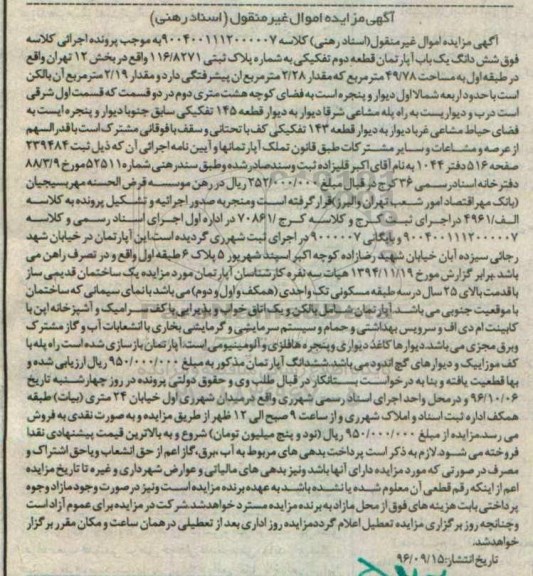 آگهی مزایده اموال غیر منقول (اسناد رهنی)
آگهی مزایده اموال غیرمنقول(اسناد رهنی) کلاسه ۹۰۰۴۰۰۱۱۱۲۰۰۰۰۰۷ به موجب پرونده اجرائی کلاسه
فوق شش دانگ یک باب آپارتمان قطعه دوم تفکیکی به شماره پلاک ثبتی ۱۱۶/۸۲۷۱ واقع در بخش ۱۲ تهران واقع
در طبقه اول به مساحت ۴۹/۷۸ متر مربع که مقدار ۲/۲۸ مترمربع ان پیشرفتگی دارد و مقدار ۲/۱۹ مترمربع آن بالکن
است با حدود اربعه شمالا اول دیوار و پنجره است به فضای کوچه هشت متری دوم در دو قسمت که قسمت اول شرقی
است درب و دیواریست به راه پله مشاعی شرقا دیوار به دیوار قطعه ۱۴۵ تفکیکی سابق جنوبا دیوار و پنجره ایست به
فضای حیاط مشاعی غربا دیوار به دیوار قطعه ۱۴۳ تفکیکی کف با تحتانی و سقف با فوقانی مشترک است با قدر السهم
از عرصه و مشاعات و سایر مشترکات طبق قانون تملک آپارتمانها و آیین نامه اجرائی آن که ذیل ثبت ۲۳۹۴۸۴
صفحه ۵۱۶ دفتر ۱۰۴۴ به نام آقای اکبر قلیزاده ثبت و سند صادر شده و طبق سند رهنی شماره ۵۲۵۱۱ مورخ ۸۸/۳/۹
دفترخانه اسناد رسمی ۳۶ کرج در قبال مبلغ ۲۵۲/۰۰۰/۰۰۰ ریال در رهن موسسه قرض الحسنه مهر بسیجیان
(بانک مهر اقتصاد امور شعب تهران و البرز) قرار گرفته است و منجر به صدور اجرائیه و تشکیل پرونده به کلاسه
الف/۴۹۶۱ در اجرای ثبت کرج و کلاسه کرج ۷۰۸۶۱/ در اداره اول اجرای اسناد رسمی و کلاسه
۹۰۰۴۰۰۱۱۱۲۰۰۰۰۰۷ و بایگانی ۹۰۰۰۰۰۷ در اجرای ثبت شهرری گردیده است این آپارتمان در خیابان شهد
رجائی سیزده آبان خیابان شهید رضازاده کوچه اکبر اسپند شهریور ۵ پلاک ۶ طبقه اول واقع و در تصرف راهن می
باشد. برابر گزارش مورخ ۱۳۹۴/۱۱/۱۹ هیات سه نفره کارشناسان آپارتمان مورد مزایده یک ساختمان قدیمی ساز
با قدمت بالای ۲۵ سال در سه طبقه مسکونی تک واحدی (همکف و اول و دوم) می باشد با نمای سیمانی که ساختمان
با موقعیت جنوبی می باشد. آپارتمان شامل بالکن و یک اتاق خواب و پذیرایی با کف سرامیک و آشپزخانه اپن با
کابینت ام دی اف و سرویس بهداشتی و حمام و سیستم سرمایشی و گرمایشی بخاری با انشعابات آب و گاز مشترک
وبرق مجزی می باشد. دیوارها کاغذ دیواری و پنجره ها فلزی و آلومینیومی است. آپارتمان بازسازی شده است راه پله با
کف موزاییک و دیوارهای گچ اندود می باشد. ششدانگ آپارتمان مذکور به مبلغ ۹۵۰/۰۰۰/۰۰۰ ریال ارزیابی شده و
بها قطعیت یافته و بنا به درخواست بستانکار در قبال طلب وی و حقوق دولتی پرونده در روز چهارشنبه تاریخ
۹۶/۱۰/۰۶ و در محل واحد اجرای اسناد رسمی شهرری واقع در میدان شهرری اول خیابان ۲۴ متری (بیات) طبقه
همکف اداره ثبت اسناد و املاک شهرری و از ساعت ۹ صبح الی ۱۲ ظهر از طریق مزایده و به صورت نقدی به فروش
می رسد. مزایده از مبلغ ۹۵۰/۰۰۰/۰۰۰ ریال (نود و پنج میلیون تومان) شروع و به بالاترین قیمت پیشنهادی نقدا
فروخته می شود. لازم به ذکر است پرداخت بدهی های مربوط به آب، برق، گاز اعم از حق انشعاب و یا حق اشتراک و
مصرف در صورتی که مورد مزایده دارای آنها باشد و نیز بدهی های مالیاتی و عوارض شهرداری و غیره تا تاریخ مزایده
اعم از اینکه رقم قطعی آن معلوم شده یا نشده باشد به عهده برنده مزایده است و نیز در صورت وجود مازاد وجوه
پرداختی بابت هزینه های فوق از محل مازاد به برنده مزایده مسترد خواهد شد. شرکت در مزایده برای عموم آزاد است
و چنانچه روز برگزاری مزایده تعطیل اعلام گردد مزایده روز اداری بعد از تعطیلی در همان ساعت و مکان مقرر برگزار
خواهد شد.
تاریخ انتشار: ۹۶/۰۹/۱۵